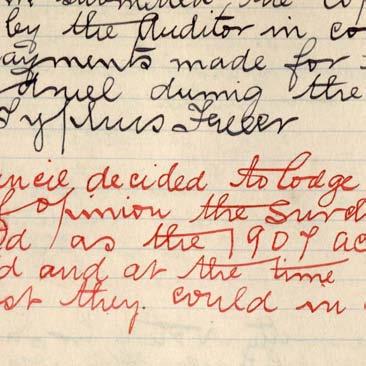 submitted, the
by the Auditor in co
ayments made for
during the
Typhus Fever
uncil decided to lodge
of opinion the Surc
d as the 1907 ac
d and at the time
st they could in